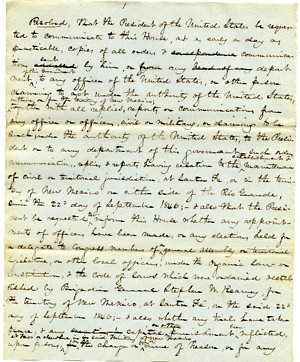 Resolved, That the President of the United States be reques-
ted to communicate to this House, at as early a day as
practicable, copies of all orders & communi-
cations by him, or from any depart-
ment to officers of the United States, or other persons
claiming to act under the authority of the United States,
within or for the territory of New Mexico,
& the replies, reports or communications from
any officer or officers, civil or military, or claiming to be
such under the authority of the United States, to the Presi-
dent or to any department of this government; such orders,
communications, replies & reports having relation to the establishment
of civil or territorial jurisdiction at Santa Fe in the territo-
ry of New Mexico on either side of the Rio Grande,
since the 22d day of September 1846; & also that the Presi-
dent be requested to inform this House whether any appoint-
ments of officers have been made, or any elections held for
a delegate to Congress, members of general assembly or territorial
legislature, or other local officers, under the organic law or
constitution, & the code of laws which were ordained & estab-
lished by Brigadier General Stephen W. Kearny for
the territory of New Mexico, at Santa Fe, on the said 22d
day of September 1846; & also whether any trials have taken
place, & any capital punishment inflicted
in said territory of New Mexico,
upon the charge or crime of treason or for any